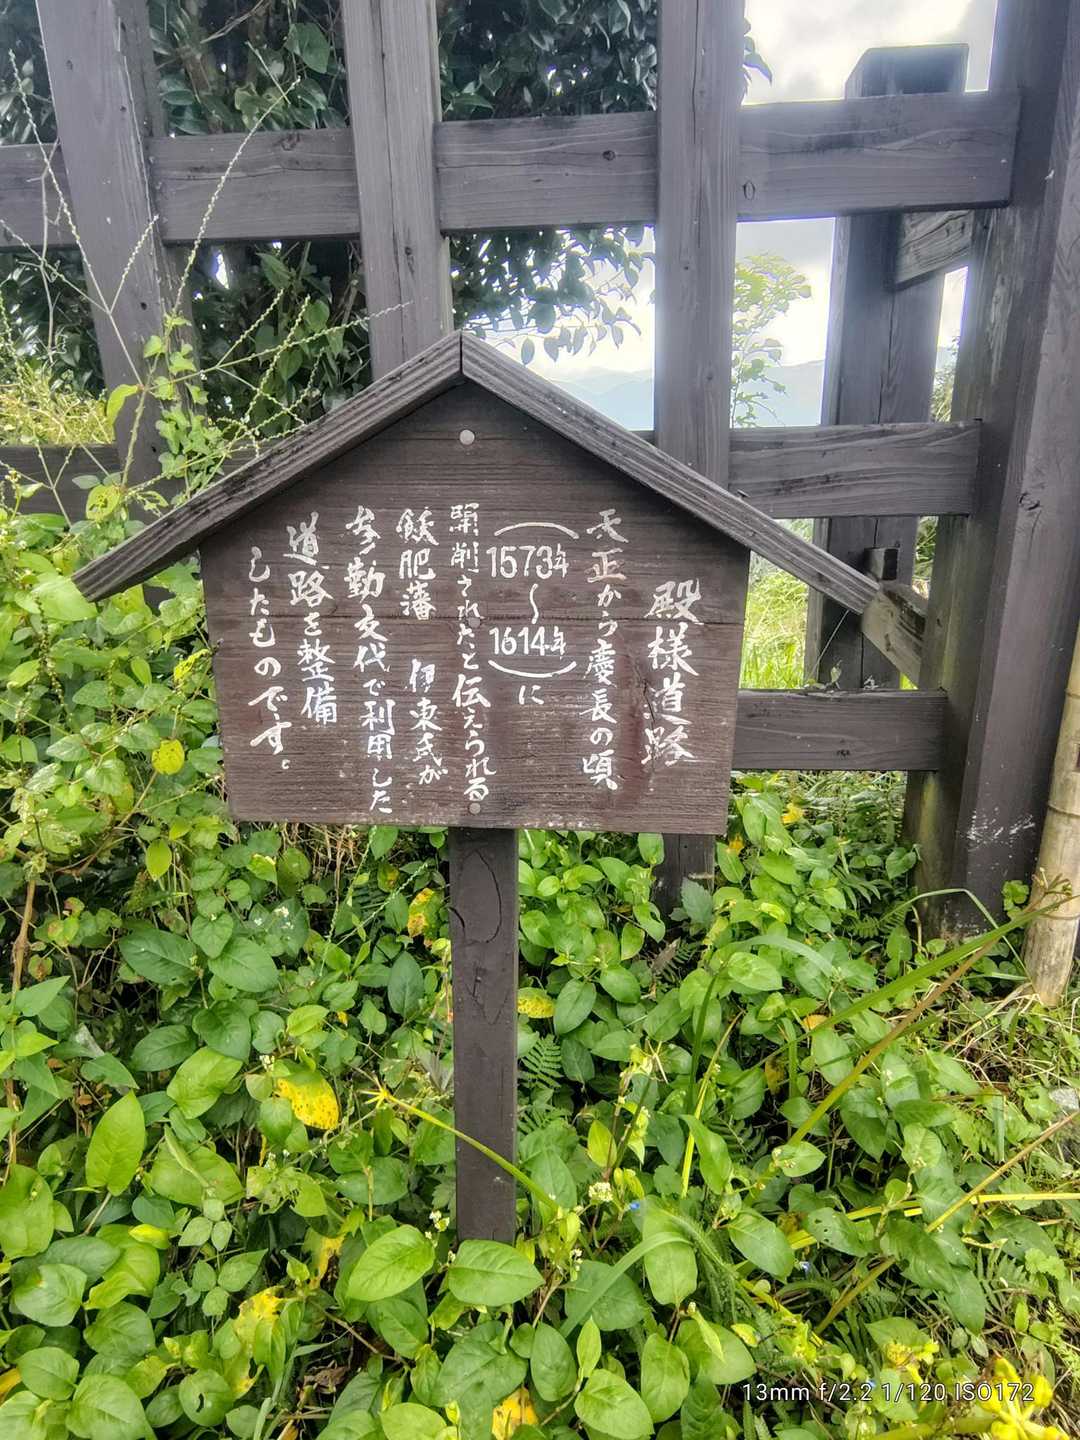 殿様道路
天正から慶長の頃
(1573年～1614年)に
開削されたと伝えられる
飫肥藩 伊東氏が
参勤交代で利用した
道路を整備
したものです。
13mm f/2.2 1/120 ISO172